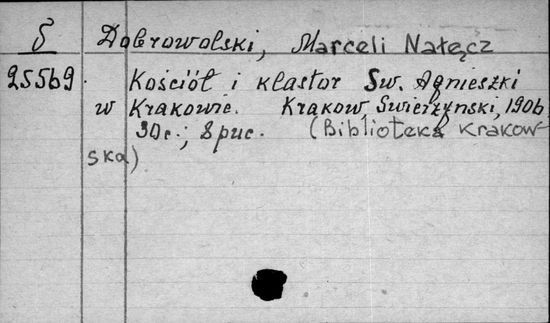 Б Dobrowolski, Marceli Nałęcz
25569. Kościół i klastor Sw. Agnieszki
w Krakowie. Krakow, Swierzynski, 1906,
30c.; 8 рис. (Biblioteka Krakow-
ska)